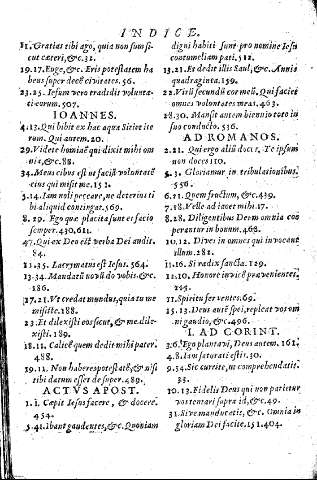 INDICE.
11. Gratias tibi ago, quia non sum si-
cut cæteri, &c. 31.
19. 17. Euge, &c. Eris potestatem ha
bens super decē civitates. 56.
23. 25. Iesum vero tradidit volunta-
ti eorum. 507.
IOANNES.
4. 13. Qui bibit ex hac aqua Sitiet ite
rum. Qui autem. 20.
29. Videte hominē qui dixit mihi om
nia, &c. 88.
34. Meus cibus est ut faciā voluntatē
eius qui misit me. 151.
5. 14. Iam noli peccare, ne deterius ti
bi aliquid contingat. 569.
8. 29. Ego quæ placita sunt ei facio
semper. 430. 611.
47. Qui ex Deo est verba Dei audit.
84.
11. 35. Lacrymatus est Iesus. 564.
13. 34. Mandatū novū do vobis. &c.
186.
17. 21. Ut credat mundus, quia tu me
misisti. 188.
23. Et dilexisti eos sicut, & me dile-
xisti. 189.
18. 11. Calicē quem dedit mihi pater.
488.
19. 11. Non haberes potestatē, & nisi
tibi datum esset de super. 489.
ACTUS APOST.
1. 1. Cæpit Iesus facere, & docere.
454.
5. 41. Ibant gaudentes, &c. Quoniam
digni habiti sunt pro nomine Iesu
contumeliam pati. 512.
13. 21. Et dedit illis Saul, &c. Annis
quadraginta. 159.
22. Virū secundū cor meū. Qui faciet
omnes voluntates meas. 463.
28. 30. Mansit autem biennio toto in
suo conducto. 536.
AD ROMANOS.
2. 21. Qui ergo aliū doces, Te ipsum
non doces 110.
5. 3. Gloriamur in tribulationibus.
556.
6. 21. Quem fructum, &c. 439.
7. 18. Velle adiacet mihi. 17.
8. 28. Diligentibus Deum omnia coo
perantur in bonum. 468.
10. 12. Dives in omnes qui invocant
illum. 281.
11. 16. Si radix sancta. 129.
12. 10. Honore invicē prævenientes.
125.
11. Spiritu ferventes. 69.
15. 13. Deus autē spei, repleat vos om
ni gaudio, &c. 496.
I. AD CORINT.
3. 6. Ego plantavi, Deus autem. 161.
4. 8. Iam saturati estis. 30.
9. 54. Sic currite, ut comprehendatis.
35.
10. 13. Fidelis Deus qui non patietur
vos tentari supra id, &c. 49.
31. Sive manducatis, &c. Omnia in
gloriam Dei facite. 151. 404.